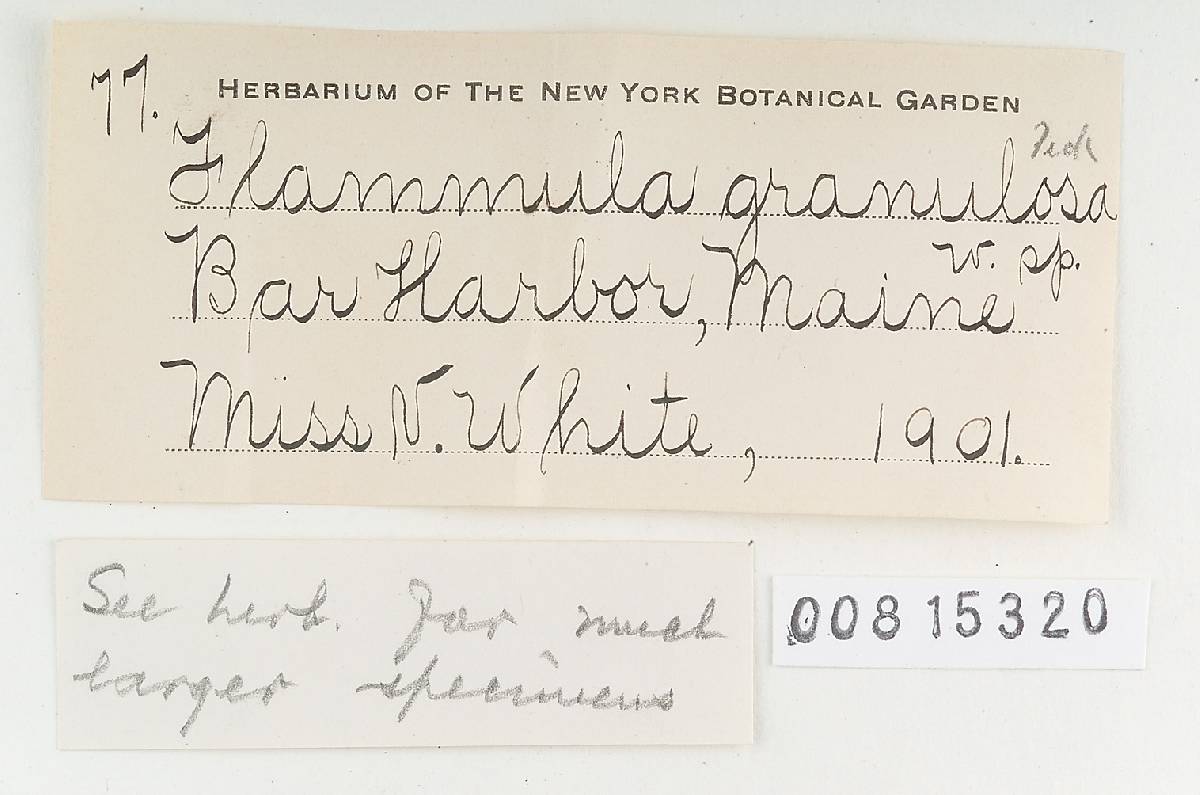 77.
HERBARIUM OF THE NEW YORK BOTANICAL GARDEN
Peck
Flammula granulosa
n. sp.
Bar Harbor, Maine
Miss V. White, 1901.
See herb. for much
larger specimens
00815320